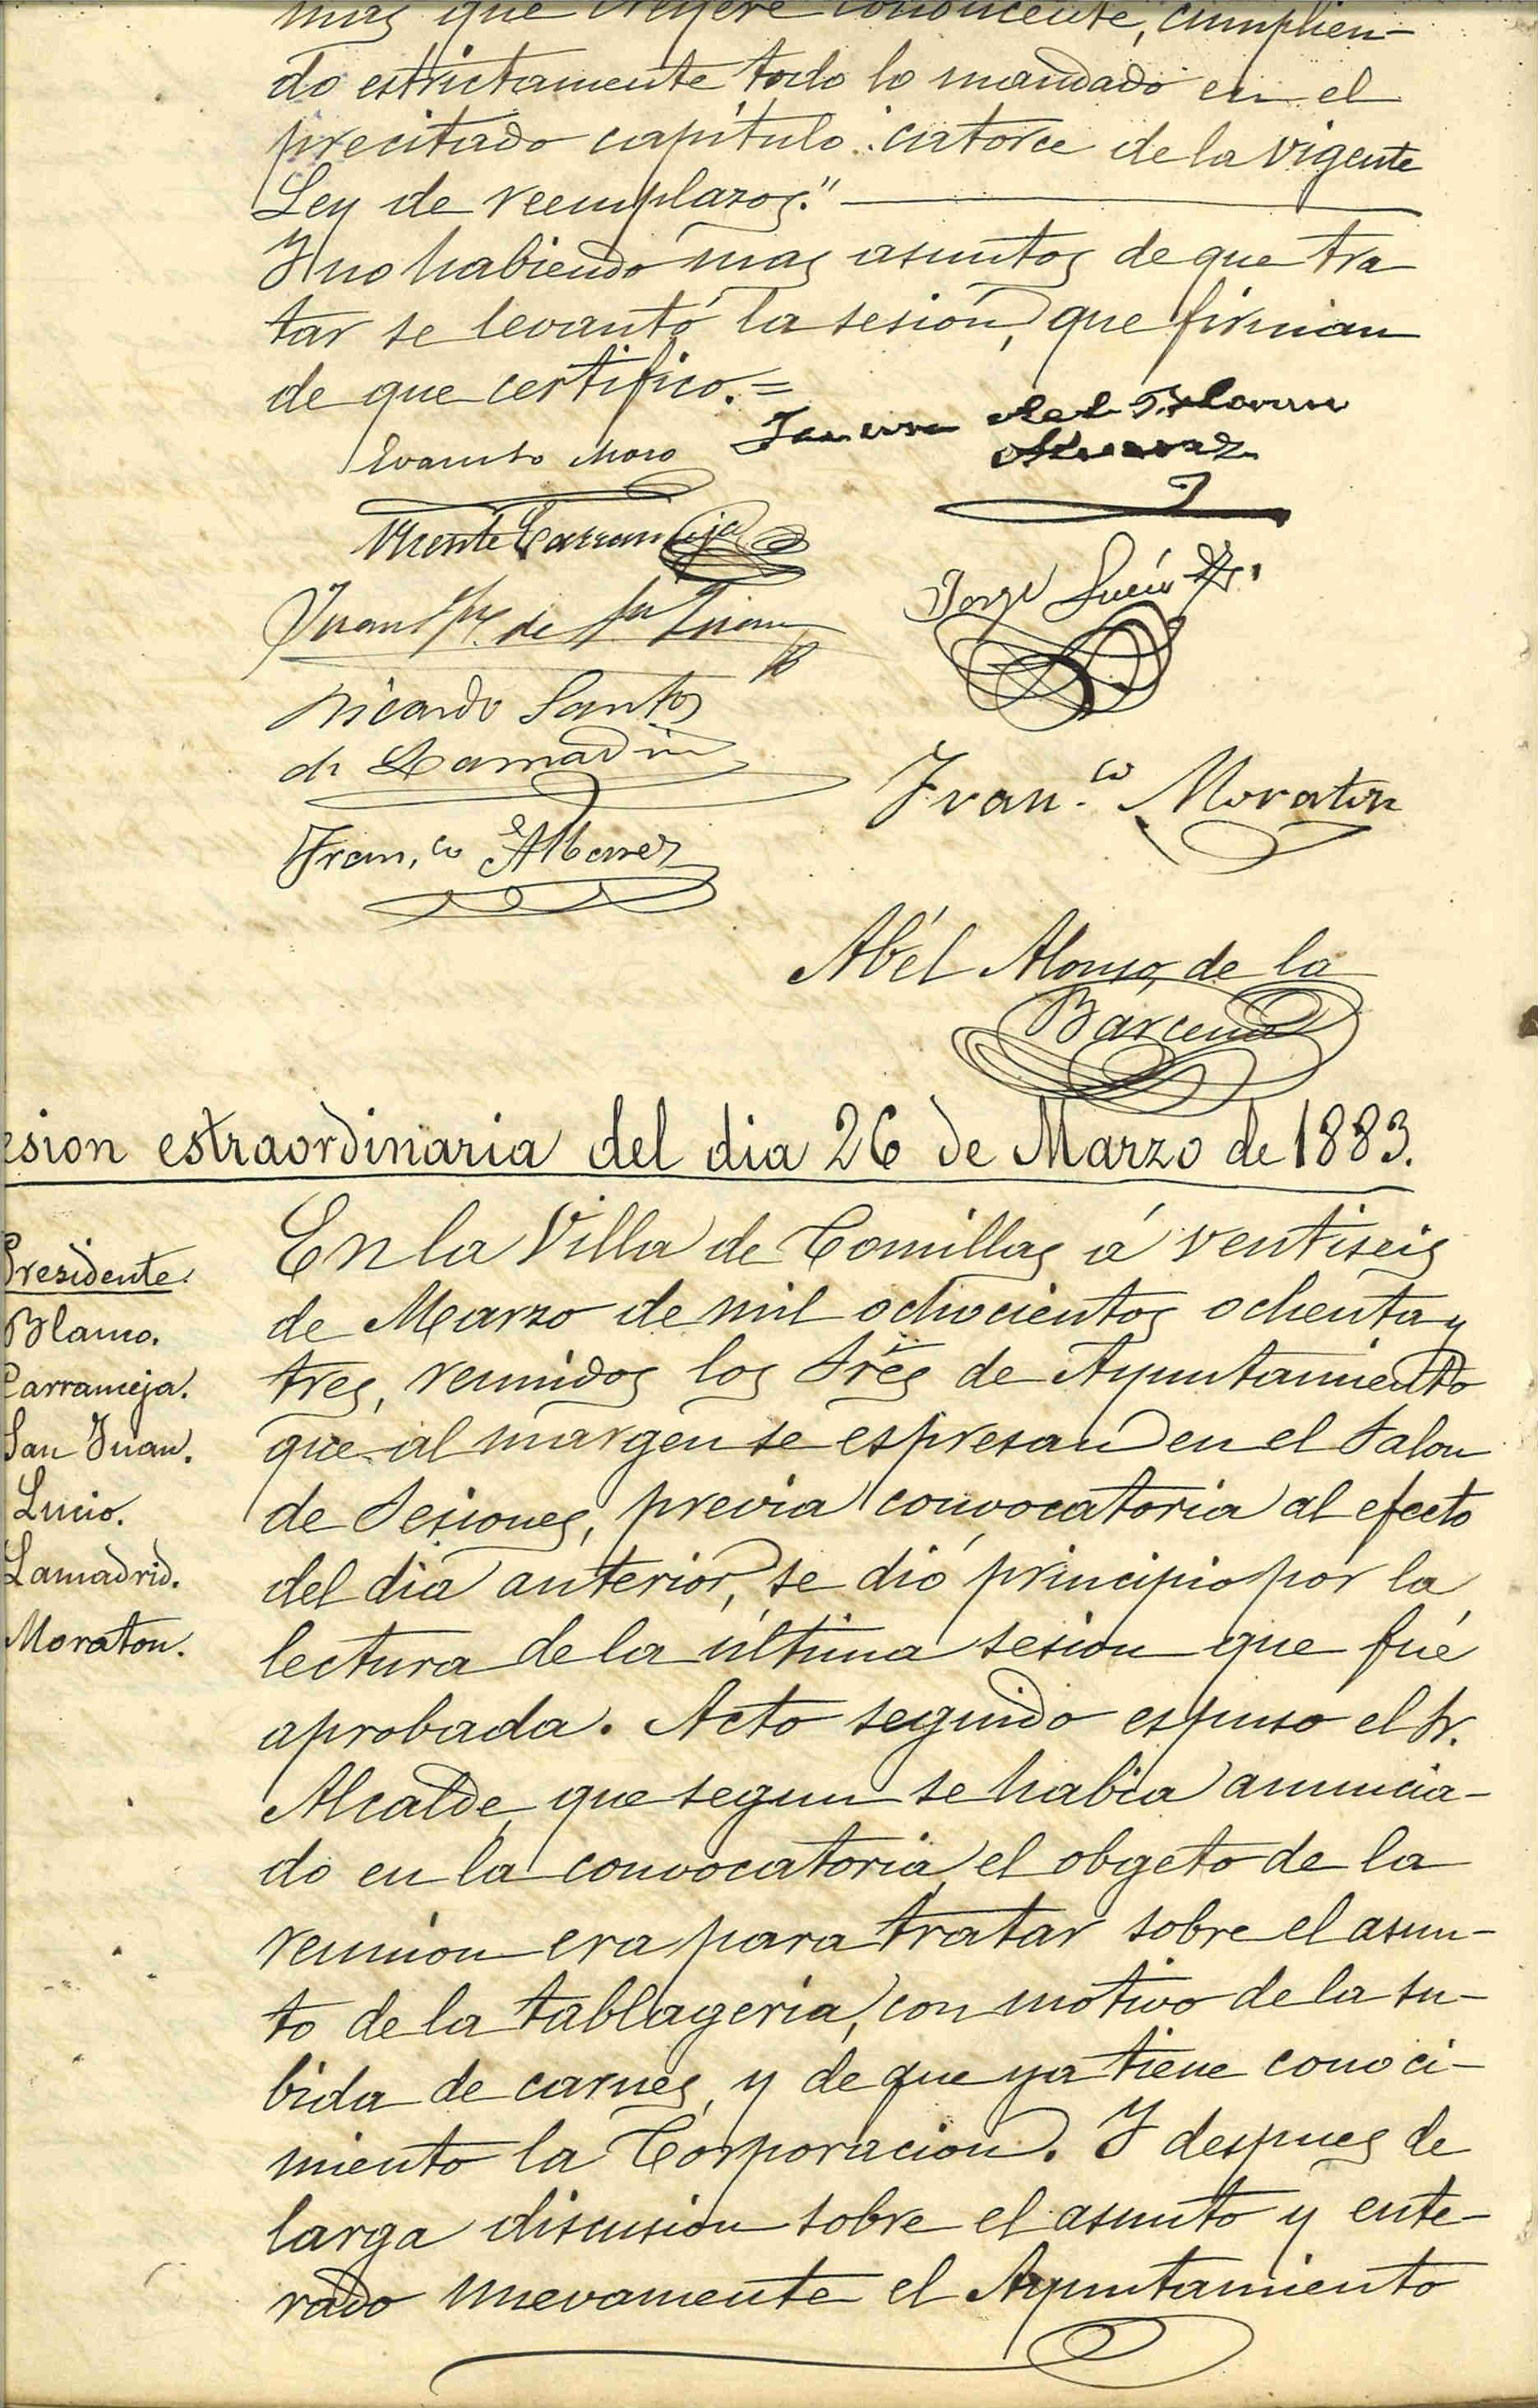 mas que creyere conducente, cumplien-
do estrictamente todo lo mandado en el
precitado capítulo catorce de la vigente
Ley de reemplazos."
Y no habiendo mas asuntos de que tra
tar se levantó la sesión, que firman
de que certifico.=
Evaristo Moro
Vicente Carranceja
Jorge Lucio
Juan de San Juan
Ricardo Santos
de Lamadrid
Fran.co Moraton
Fran.co Albarez
Abél Alonso de la
Barcena
esion estraordinaria del dia 26 de Marzo de 1883.
Presidente.
Blanco.
Carranceja.
San Juan.
Lucio.
Lamadrid.
Moraton.
En la Villa de Comillas á ventiseis
de Marzo de mil ochocientos ochenta y
tres, reunidos los Sres de Ayuntamiento
que al margen se espresan en el Salon
de Sesiones, previa convocatoria al efecto
del dia anterior, se dió principio por la
lectura de la última sesion que fué
aprobada. Acto seguido espuso el Sr.
Alcalde, que segun se habia anuncia-
do en la convocatoria, el obgeto de la
reunion era para tratar sobre el asun-
to de la tablageria, con motivo de la su-
bida de carnes, y de que ya tiene conoci-
miento la Corporacion. Y despues de
larga discusion sobre el asunto y ente-
rado nuevamente el Ayuntamiento